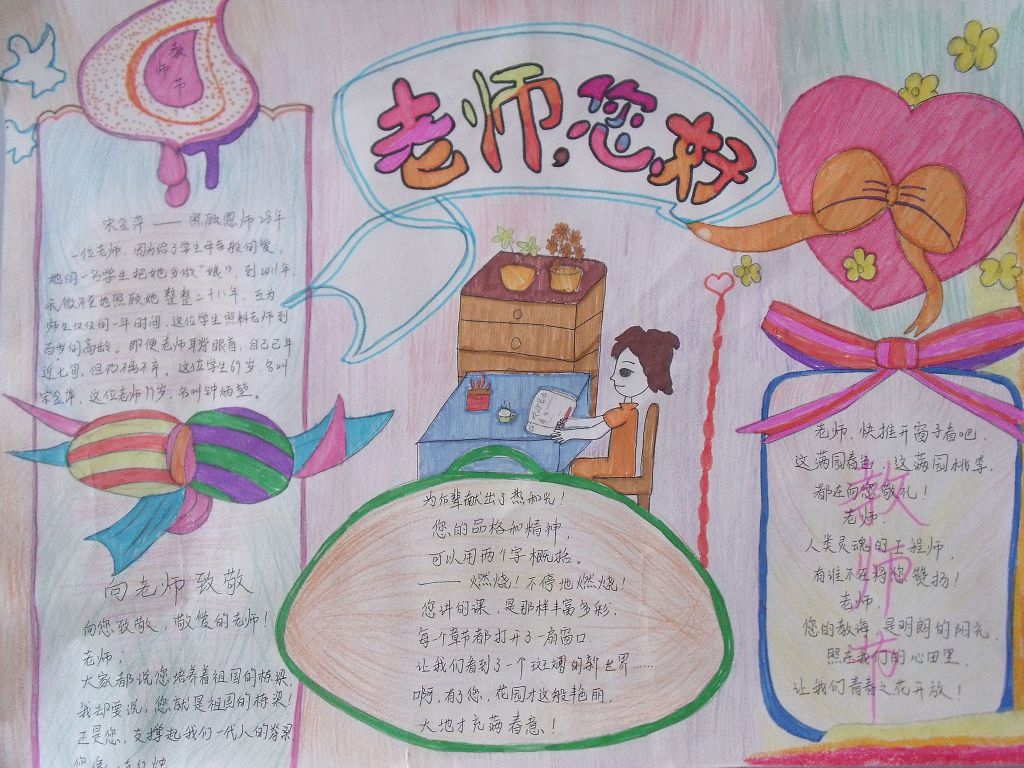 教师节
老师,您好
宋金萍——照顾恩师28年
一位老师,因为给了学生母亲般的爱,
她的一名学生把她当做“娘”,到2011年,
无微不至地照顾她整整二十八年,互为
师生仅仅同一年时间,这位学生照料老师到
百岁的高龄。即便老师耳背眼盲,自己已年
近七旬,但仍不离不弃,这位学生67岁,名叫
宋金萍,这位老师99岁,名叫钟
向老师致敬
向您致敬,敬爱的老师!
老师;
大家都说您培养着祖国的栋梁,
我却要说,您就是祖国的栋梁!
正是您,支撑起我们一代人的脊梁
为后辈献出了热和光!
您的品格和精神,
可以用两个字概括。
——燃烧!不停地燃烧!
您讲的课,是那样丰富多彩,
每个章节都打开了一扇窗口,
让我们看到了一个斑斓的新世界……
啊,有了您,花园才这般艳丽,
大地才充满春意!
教师节
老师,快推开窗子看吧,
这满园春色,这满园桃李,
都在向您敬礼!
老师,
人类灵魂的工程师,
有谁不在将您赞扬!
老师,
您的教诲,是明朗的阳光,
照在我们的心田里,
让我们青春之花开放!